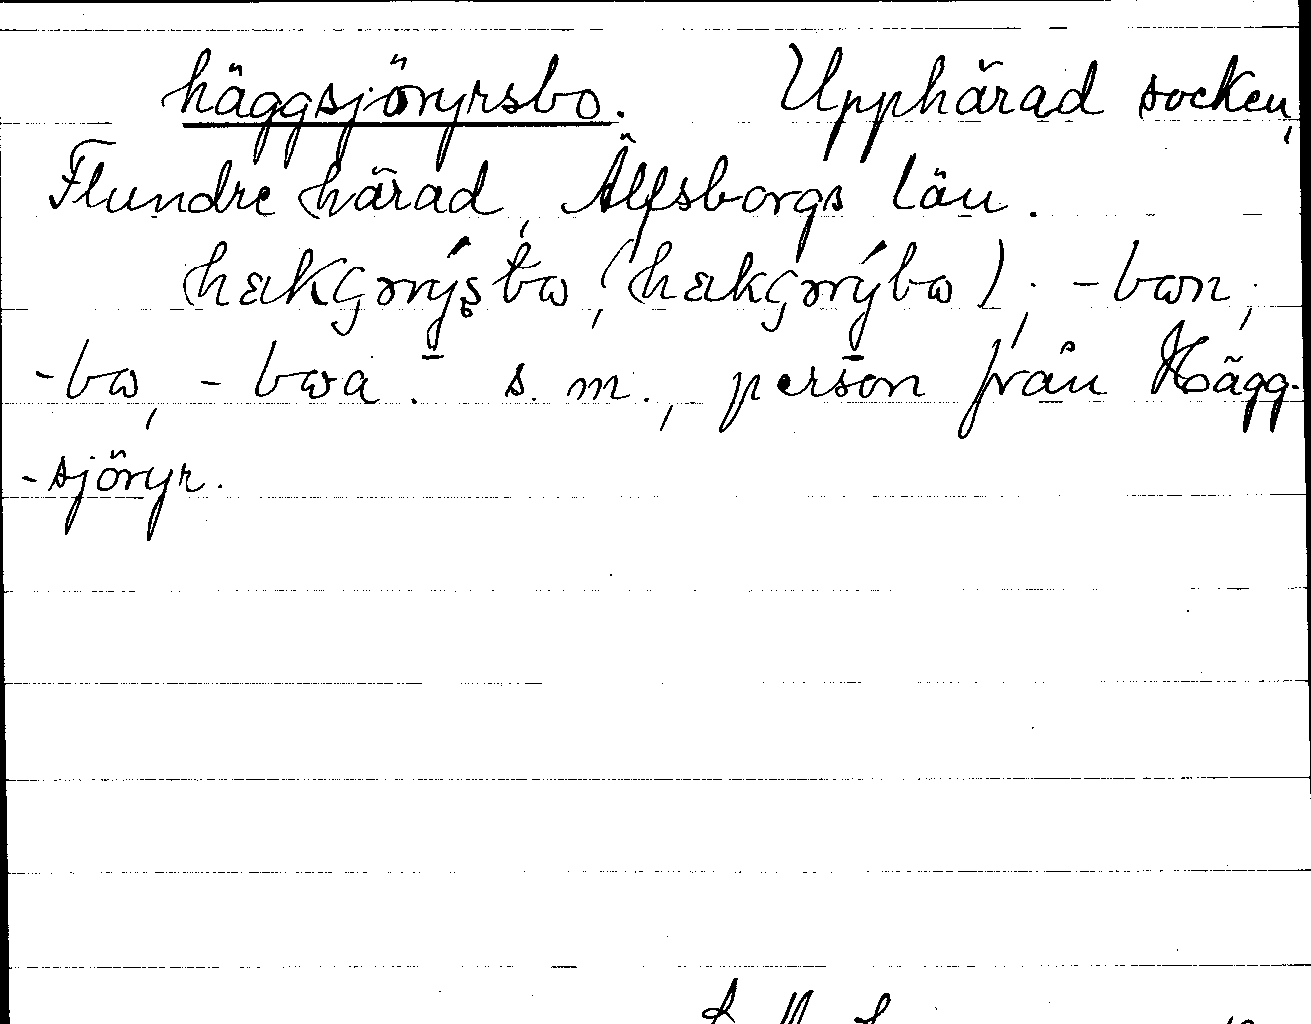 häggsjöryrsbo. Upphärad socken,
Flundre härad, Älfsborgs län.
hɛkɢɿrýʂbɷ, (hɛkɢɿrýbɷ); -bɷn;
-bɷ, -bɷa. s. m., person från Hägg-
-sjöryr.